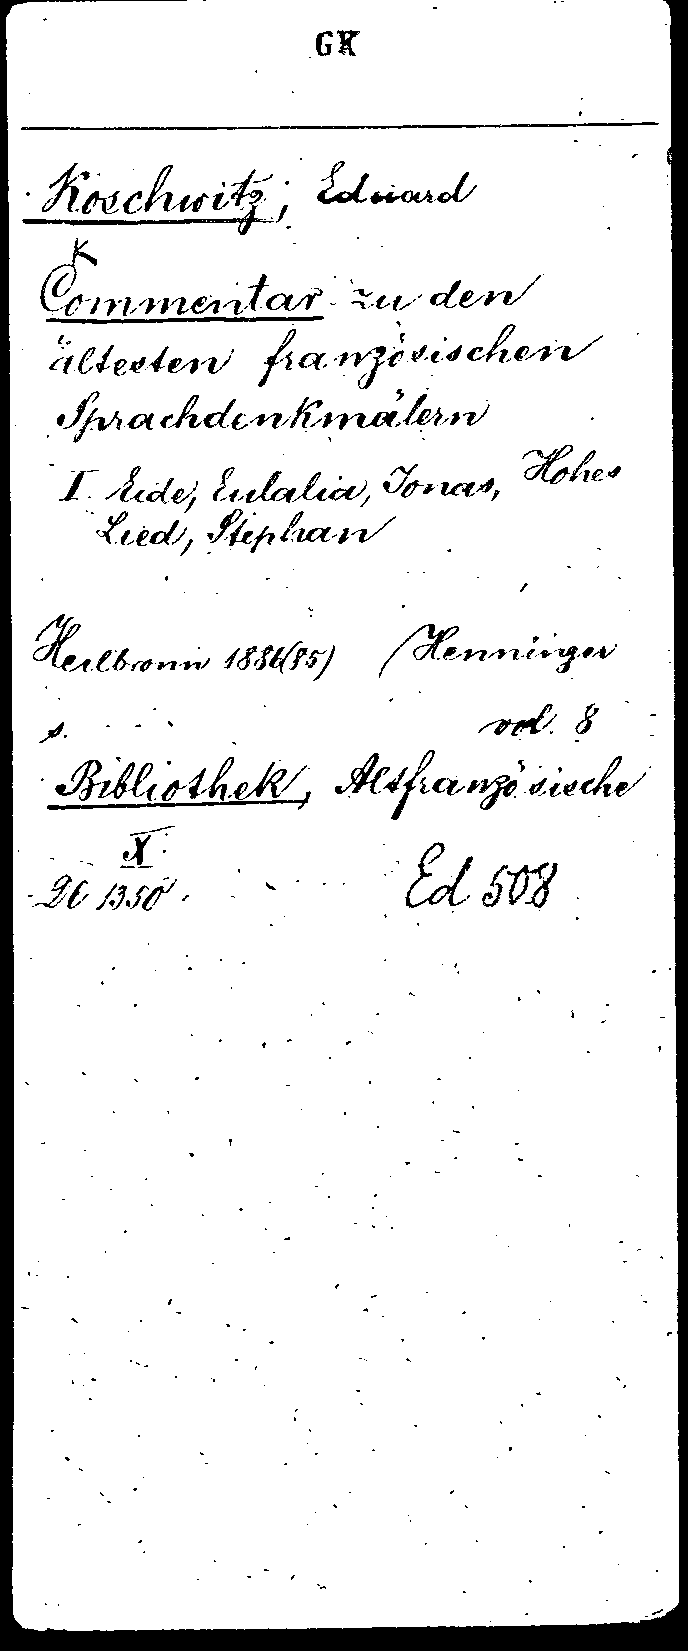 GK
Koschwitz, Eduard
K
Commentar zu den
ältesten französischen
Sprachdenkmälern
I. Eide, Eulalia, Jonas, Hohes
Lied, Stephan
Heilbronn 1886(85) / Henninger
s. vol. 8
Bibliothek, Altfranzösische
X
26 1350 Ed 508